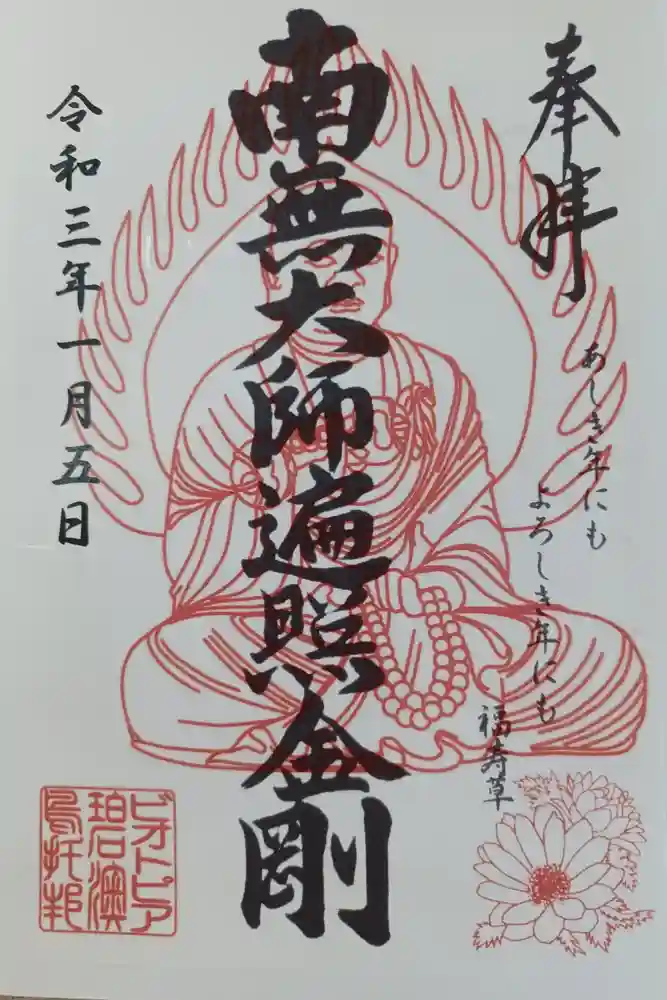 奉拝
あしき年にも
よろしき年にも
福寿草
南無大師遍照金剛
令和三年一月五日
ビオトピア
碧澳
烏托邦